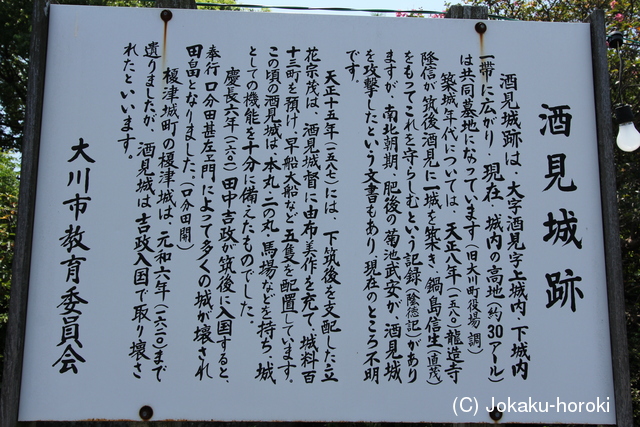 酒見城跡
酒見城跡は、大字酒見字上城内、下城内
一帯に広がり、現在、城内の高地（約30アール）
は共同墓地になっています（旧大川町役場調）
築城年代については、天正八年（一五八〇）龍造寺
隆信が筑後酒見に一城を築き、鍋島信生（直茂）
をもってこれを守らしむという記録（隆徳記）があり
ますが、南北朝期、肥後の菊池武安が、酒見城
を攻撃したという文書もあり、現在のところ不明
です。
天正十五年（一五八七）には、下筑後を支配した立
花宗茂は、酒見城督に由布美作を充て、城料百
十三町を預け、早船大船など五隻を配置しています。
この頃の酒見城は、本丸、二の丸、馬場などを持ち、城
としての機能を十分に備えたものでした。
慶長六年（一六〇一）田中吉政が筑後に入国すると、
奉行 口分田甚左ヱ門によって多くの城が壊され
田畠となりました。（口分田開）
榎津城町の榎津城は、元和六年（一六二〇）まで
遺りましたが、酒見城は吉政入国で取り壊さ
れたといいます。
大川市教育委員会
(C) Jokaku-horoki